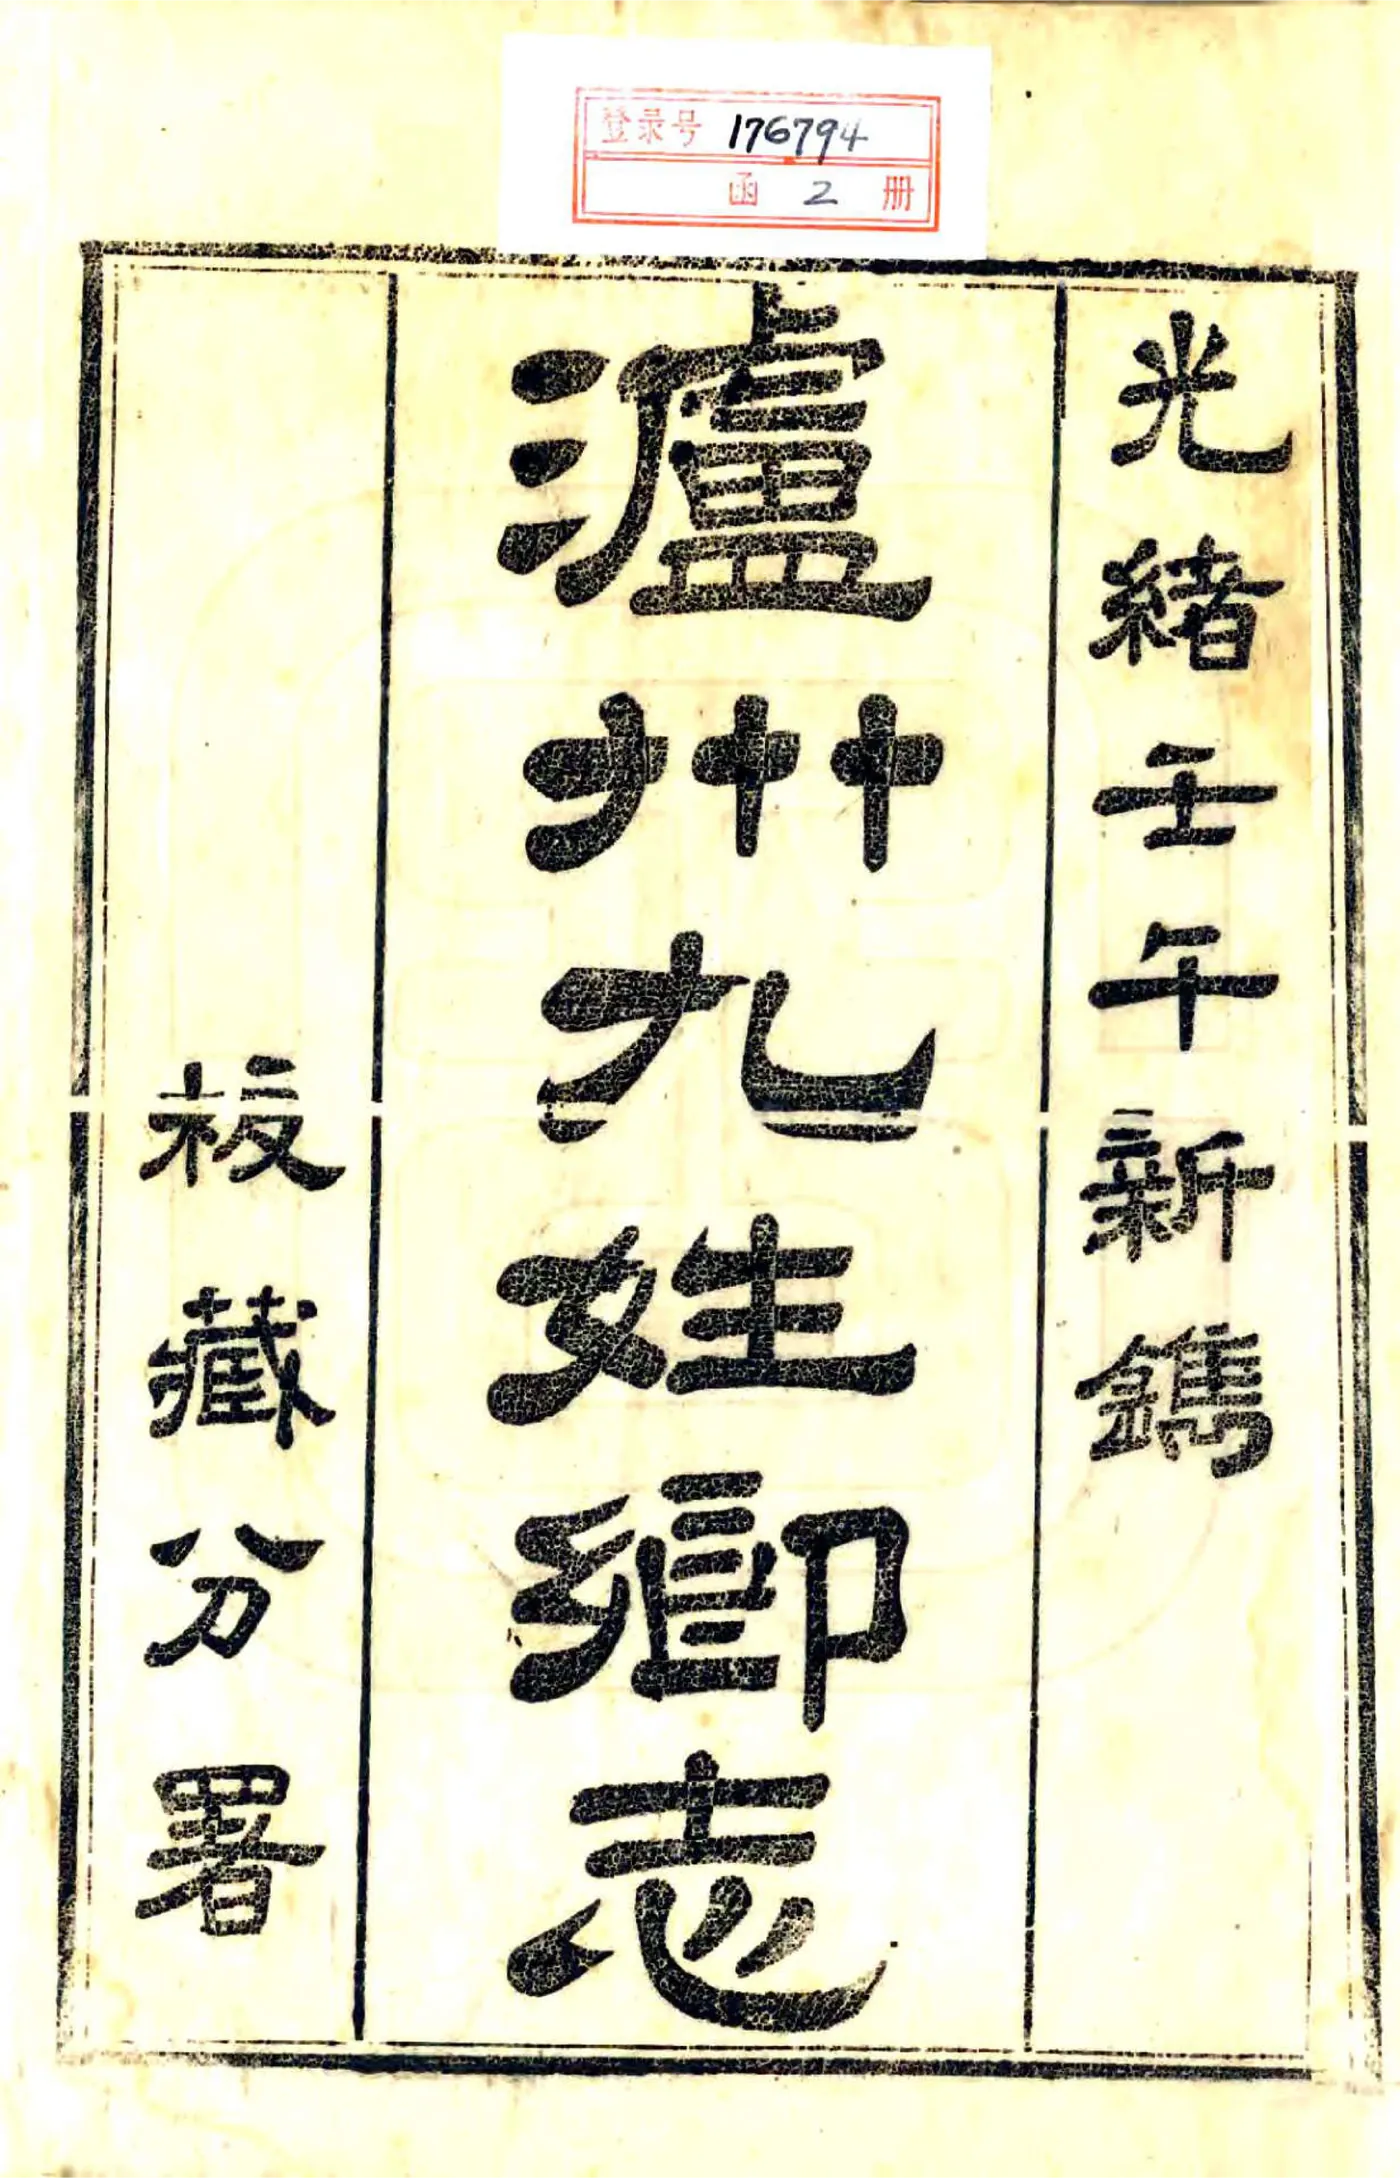 登录号 176794
函 2 册
光緒壬午新鐫
瀘州九姓鄉志
板藏分署